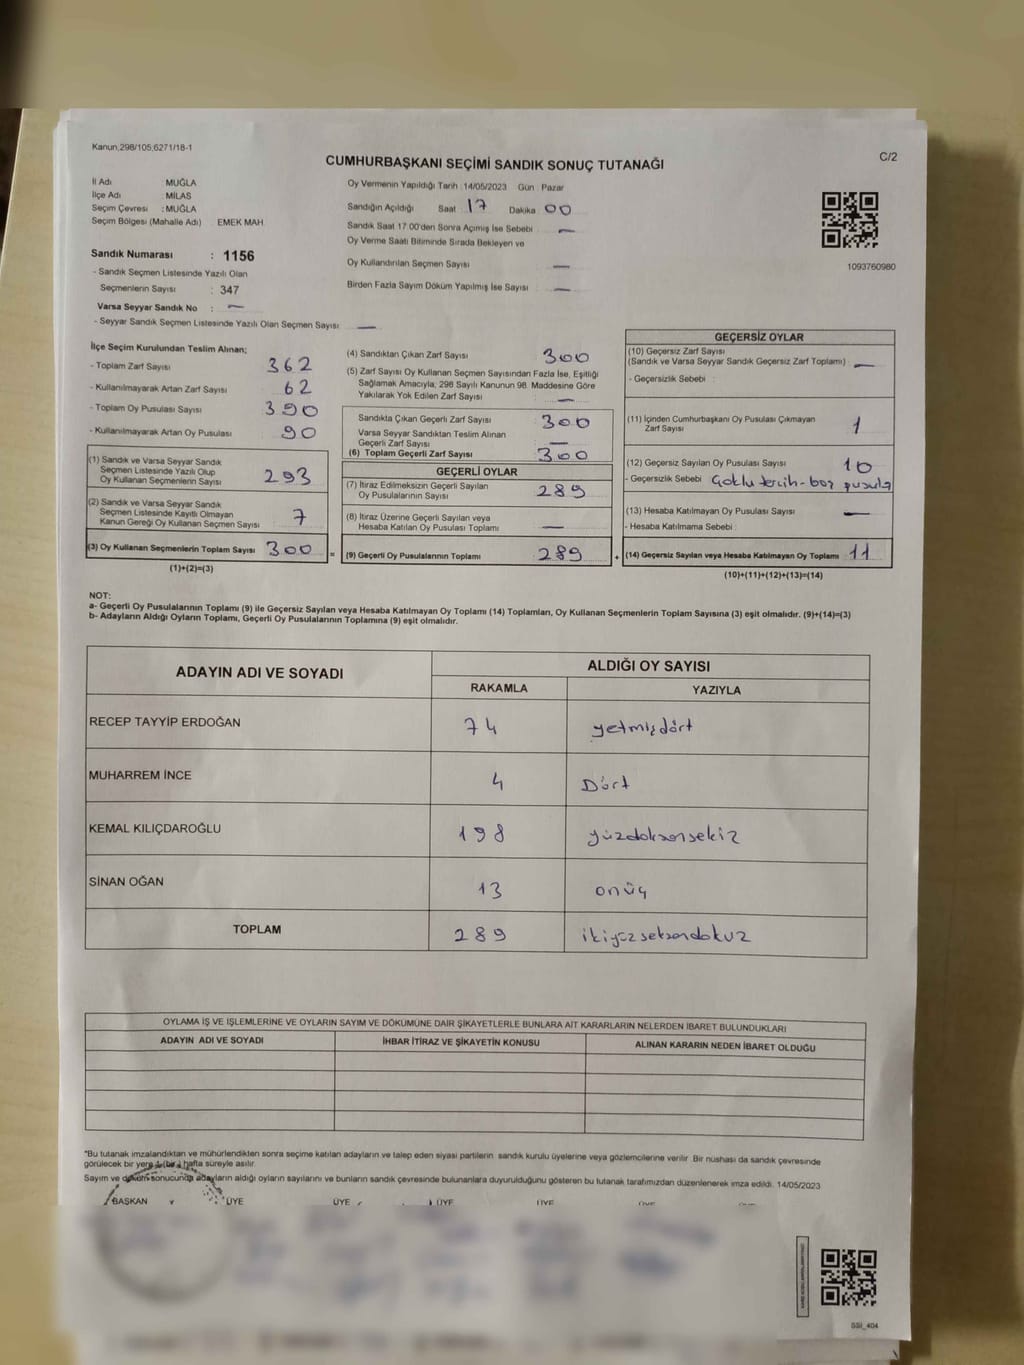 Kanun,298/105,6271/18-1
CUMHURBAŞKANI SEÇİMİ SANDIK SONUÇ TUTANAĞI
C/2
İl Adı : MUĞLA
İlçe Adı : MİLAS
Seçim Çevresi : MUĞLA
Seçim Bölgesi (Mahalle Adı) EMEK MAH
Sandık Numarası : 1156
- Sandık Seçmen Listesinde Yazılı Olan
Seçmenlerin Sayısı : 347
Varsa Seyyar Sandık No : —
- Seyyar Sandık Seçmen Listesinde Yazılı Olan Seçmen Sayısı —
Oy Vermenin Yapıldığı Tarih :14/05/2023 Gün Pazar
Sandığın Açıldığı Saat 17 Dakika 00
Sandık Saat 17.00'den Sonra Açımış İse Sebebi —
Oy Verme Saati Bitiminde Sırada Bekleyen ve
Oy Kullandırılan Seçmen Sayısı —
Birden Fazla Sayım Döküm Yapılmış İse Sayısı —
1093760980
İlçe Seçim Kurulundan Teslim Alınan;
- Toplam Zarf Sayısı 362
- Kullanılmayarak Artan Zarf Sayısı 62
- Toplam Oy Pusulası Sayısı 390
- Kullanılmayarak Artan Oy Pusulası 90
(1) Sandık ve Varsa Seyyar Sandık
Seçmen Listesinde Yazılı Olup
Oy Kullanan Seçmenlerin Sayısı 293
(2) Sandık ve Varsa Seyyar Sandık
Seçmen Listesinde Kayıtlı Olmayan
Kanun Gereği Oy Kullanan Seçmen Sayısı 7
(3) Oy Kullanan Seçmenlerin Toplam Sayısı 300 =
(1)+(2)=(3)
(4) Sandıktan Çıkan Zarf Sayısı 300
(5) Zarf Sayısı Oy Kullanan Seçmen Sayısından Fazla İse, Eşitliği
Sağlamak Amacıyla, 298 Sayılı Kanunun 98. Maddesine Göre
Yakılarak Yok Edilen Zarf Sayısı —
Sandıkta Çıkan Geçerli Zarf Sayısı 300
Varsa Seyyar Sandıktan Teslim Alınan
Geçerli Zarf Sayısı —
(6) Toplam Geçerli Zarf Sayısı 300
GEÇERLİ OYLAR
(7) İtiraz Edilmeksizin Geçerli Sayılan
Oy Pusulalarının Sayısı 289
(8) İtiraz Üzerine Geçerli Sayılan veya
Hesaba Katılan Oy Pusulası Toplamı —
(9) Geçerli Oy Pusulalarının Toplamı 289 +
GEÇERSİZ OYLAR
(10) Geçersiz Zarf Sayısı
(Sandık ve Varsa Seyyar Sandık Geçersiz Zarf Toplamı) : —
- Geçersizlik Sebebi :
(11) İçinden Cumhurbaşkanı Oy Pusulası Çıkmayan
Zarf Sayısı 1
(12) Geçersiz Sayılan Oy Pusulası Sayısı 10
- Geçersizlik Sebebi Çoklu tercih-boş pusula
(13) Hesaba Katılmayan Oy Pusulası Sayısı —
- Hesaba Katılmama Sebebi :
(14) Geçersiz Sayılan veya Hesaba Katılmayan Oy Toplamı 11
(10)+(11)+(12)+(13)=(14)
NOT:
a- Geçerli Oy Pusulalarının Toplamı (9) ile Geçersiz Sayılan veya Hesaba Katılmayan Oy Toplamı (14) Toplamları, Oy Kullanan Seçmenlerin Toplam Sayısına (3) eşit olmalıdır. (9)+(14)=(3)
b- Adayların Aldığı Oyların Toplamı, Geçerli Oy Pusulalarının Toplamına (9) eşit olmalıdır.
ADAYIN ADI VE SOYADI
ALDIĞI OY SAYISI
RAKAMLA YAZIYLA
RECEP TAYYİP ERDOĞAN 74 yetmişdört
MUHARREM İNCE 4 Dört
KEMAL KILIÇDAROĞLU 198 yüzdoksansekiz
SİNAN OĞAN 13 onüç
TOPLAM 289 ikiyüzseksendokuz
OYLAMA İŞ VE İŞLEMLERİNE VE OYLARIN SAYIM VE DÖKÜMÜNE DAİR ŞİKAYETLERLE BUNLARA AİT KARARLARIN NELERDEN İBARET BULUNDUKLARI
ADAYIN ADI VE SOYADI İHBAR İTİRAZ VE ŞİKAYETİN KONUSU ALINAN KARARIN NEDEN İBARET OLDUĞU
*Bu tutanak imzalandıktan ve mühürlendikten sonra seçime katılan adayların ve talep eden siyasi partilerin sandık kurulu üyelerine veya gözlemcilerine verilir. Bir nüshası da sandık çevresinde
görülecek bir yere 1 (bir) hafta süreyle asılır.
Sayım ve döküm sonucunda adayların aldığı oyların sayılarını ve bunların sandık çevresinde bulunanlara duyurulduğunu gösteren bu tutanak tarafımızdan düzenlenerek imza edildi. 14/05/2023
BAŞKAN ÜYE ÜYE ÜYE ÜYE ÜYE
SSI_404